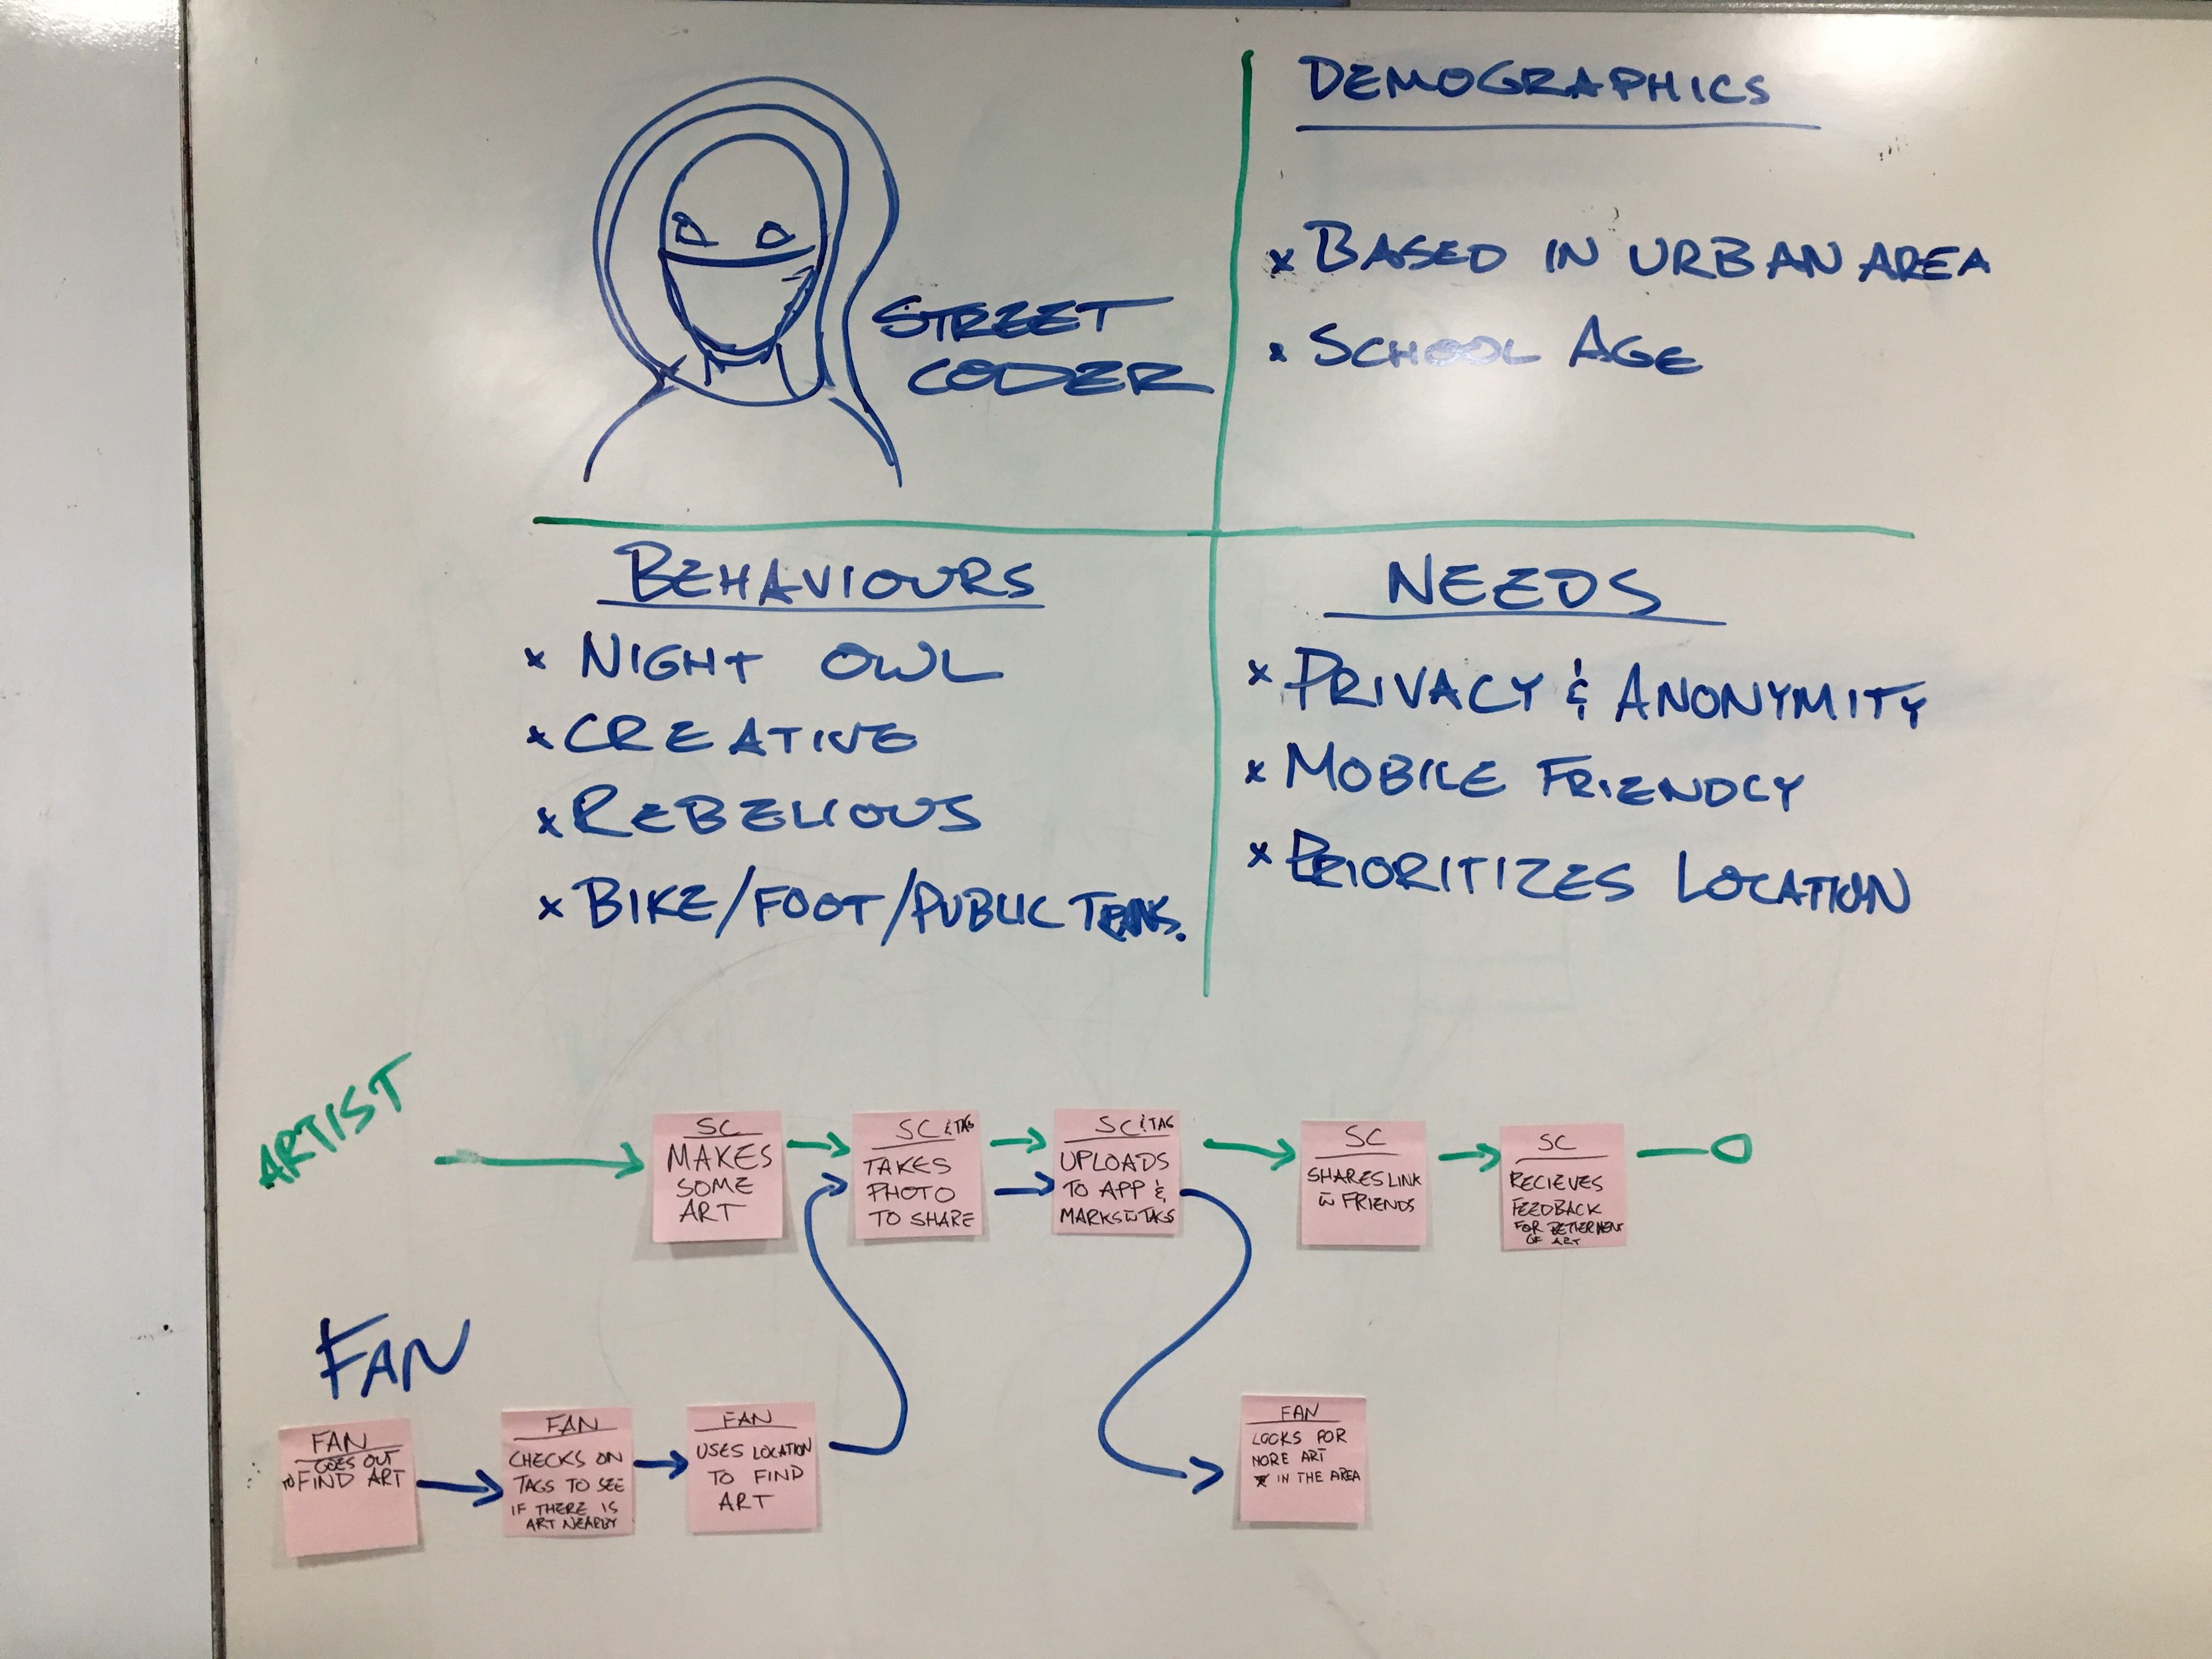 STREET
CODER
DEMOGRAPHICS
x BASED IN URBAN AREA
x SCHOOL AGE
BEHAVIOURS
x NIGHT OWL
x CREATIVE
x REBELIOUS
x BIKE/FOOT/PUBLIC TRANS.
NEEDS
x PRIVACY & ANONYMITY
x MOBILE FRIENDLY
x PRIORITIZES LOCATION
ARTIST
SC
MAKES
SOME
ART
SC & TAG
TAKES
PHOTO
TO SHARE
SC & TAG
UPLOADS
TO APP &
MARKS w TAGS
SC
SHARES LINK
w FRIENDS
SC
RECIEVES
FEEDBACK
FOR BETTERMENT
OF ART
FAN
FAN
GOES OUT
TO FIND ART
FAN
CHECKS ON
TAGS TO SEE
IF THERE IS
ART NEARBY
FAN
USES LOCATION
TO FIND
ART
FAN
LOOKS FOR
MORE ART
IN THE AREA